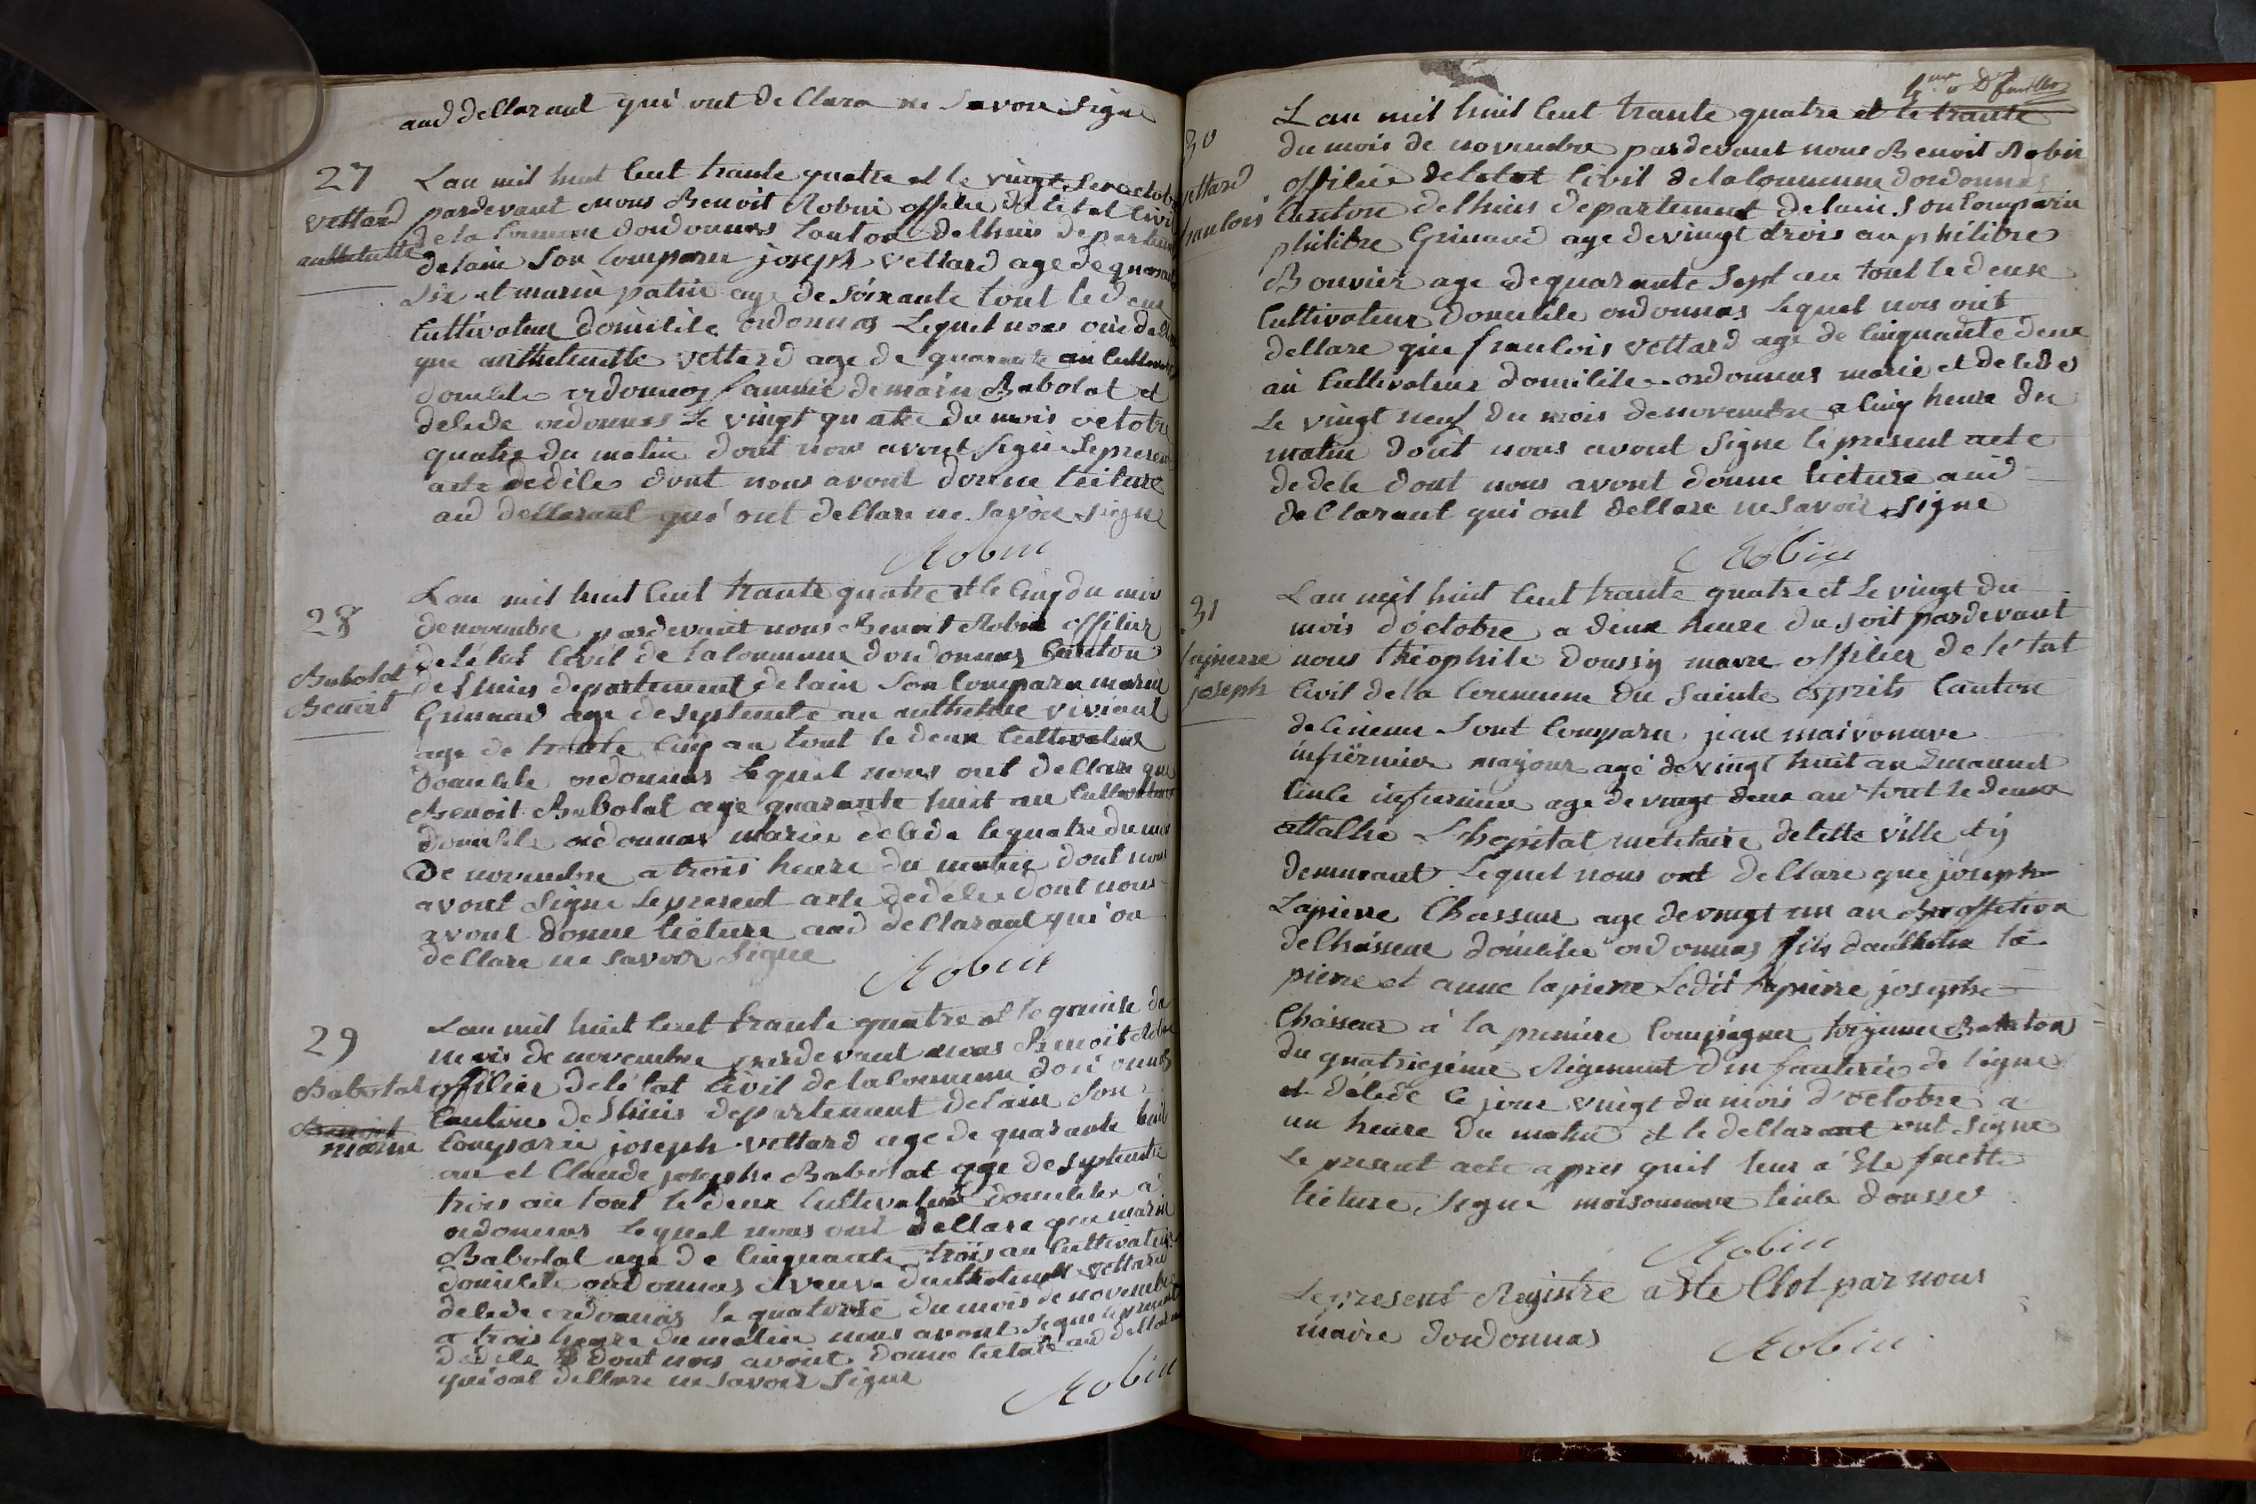 aud dellarant qui ont dellara ne savoir signe
27
Vettard
anthelmette
Lan mil huit cent trante quatre et le vingt octobr
pardevant nous Benoit Robin offilier de letat livil
de la Commune dordonnas Canton delhuis departem
delain Son Comparu joseph vettard age de quarante
six et marin patin age de soixante tout le deux
Cultivateur domicile ordonnas Lequel nous oit dellare
que anthelmette vettard age de quarante an Cultivateur
domicile ordonnas famme de marin Babolat et
delede ordonnas Le vingt quatre du mois octobre
quatre du matin dont nous avont signe Lepresent
acte dedele dont nous avont donne leiture
aud dellarant qui ont dellare ne savoir signe
Robin
28
Babolat
Benoit
Lan mil huit cent trante quatre et le cinq du mois
de novembre pardevant nous Benoit Robin offilier
de létat livil de la Commune dordonnas Canton
de Lhuis departement delain Son Comparu marin
Grinand age de septente an anthelme vivient
age de trante cinq an tout le deux Cultivateur
domicile ordonnas Lequel nous ont dellare que
Benoit Babolat age quarante huit an Cultivateur
domicile ordonnas marier delede le quatre du mois
De novembre a trois heure du matin dont nous
avont Signe Lepresent acte dedele dont nous
avont donne lieture aud dellarant qui on
dellare ne savoir Signe
Robin
29
Babolat
Benoit
marin
Lan mil huit cent trante quatre et le quinse du
mois de novembre pardevant nous Benoit Robin
offilier delétat livil de la Commune dordonnas
Canton de Lhuis departement delain Son
Comparu joseph vettard age de quarante huit
an et Claude josephe Babolat age de septente
trois an tout le deux Cultivateur domicile a
ordonnas Lequel nous ont dellare que marin
Babolat age de Cinquante trois an Cultivateur
domicile ordonnas et veuve danthelmette vettard
delede ordonnas le quatorse du mois de novembre
a trois heure du matin nous avont signe le present
dedele dont nous avont donne lieture aud dellarant
qui ont dellare ne savoir signe
Robin
30
vettard
franlois
Lan mil huit cent trante quatre et le trante
du mois de novembre pardevant nous Benoit Robin
offilier deletat livil de la Commune dordonnas
Canton delhuis departement delain Son Comparu
philibre Grinand age de vingt trois an philibre
Bouvier age de quarante Sept an tout le deux
Cultivateur domicile ordonnas Lequel nous oit
dellare que franlois vettard age de Cinquante deux
an Cultivateur domicile ordonnas marie et delede
Le vingt neuf du mois de novembre a Cinq heure du
matin dont nous avont Signe le present acte
dedele dont nous avont donne lieture aud
dellarant qui ont dellare ne savoir signe
Robin
31
Lapierre
joseph
Lan mil huit cent trante quatre et Le vingt du
mois d'octobre a deux heure du soit pardevant
nous théophile doussy maire offilier de létat
livil de la Commune du Sainte esprits Canton
delineme Sont Comparu jean maisonnave
infiermier mayour agé de vingt huit an Emanuel
linle infiermier age de vingt deux an tout le deux
attalhe Lhopital militaire de lette ville et y
demeurant Lequel nous ont dellare que joseph
Lapierre Chasseur age de vingt un an proffetion
de Chasseur domicilie ordonnas fils danthelme la
pierre et anne lapierre Ledit lapierre josephe
Chasseur à la première Compagnie troijeme Batalion
du quatriejémé Régiment d'infanterie de ligne
et délédé le jour vingt du mois d'octobre a
un heure du matin et le dellarant ont signe
Le present acte apres quil leur a Ete faitte
lieture, Signe maisonnave linle dousses
Robin
Le present Registre a ete Clot par nous
maire dordonnas
Robin